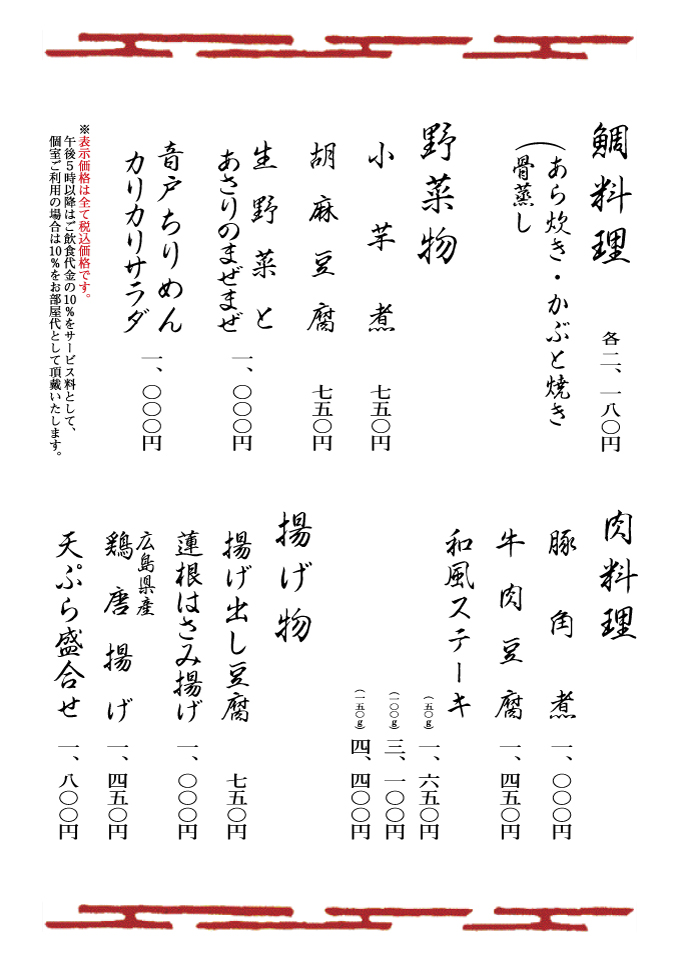 鯛料理
（あら炊き・かぶと焼き
骨蒸し
各二、一八〇円
野菜物
小芋煮
七五〇円
胡麻豆腐
七五〇円
生野菜と
あさりのまぜまぜ
一、〇〇〇円
音戸ちりめん
カリカリサラダ
一、〇〇〇円
※表示価格は全て税込価格です。
午後５時以降はご飲食代金の10％をサービス料として、
個室ご利用の場合は10％をお部屋代として頂戴いたします。
肉料理
豚角煮
一、〇〇〇円
牛肉豆腐
一、四五〇円
和風ステーキ
（五〇g）一、六五〇円
（一〇〇g）三、一〇〇円
（一五〇g）四、四〇〇円
揚げ物
揚げ出し豆腐
七五〇円
蓮根はさみ揚げ
一、〇〇〇円
広島県産
鶏唐揚げ
一、四五〇円
天ぷら盛合せ
一、八〇〇円